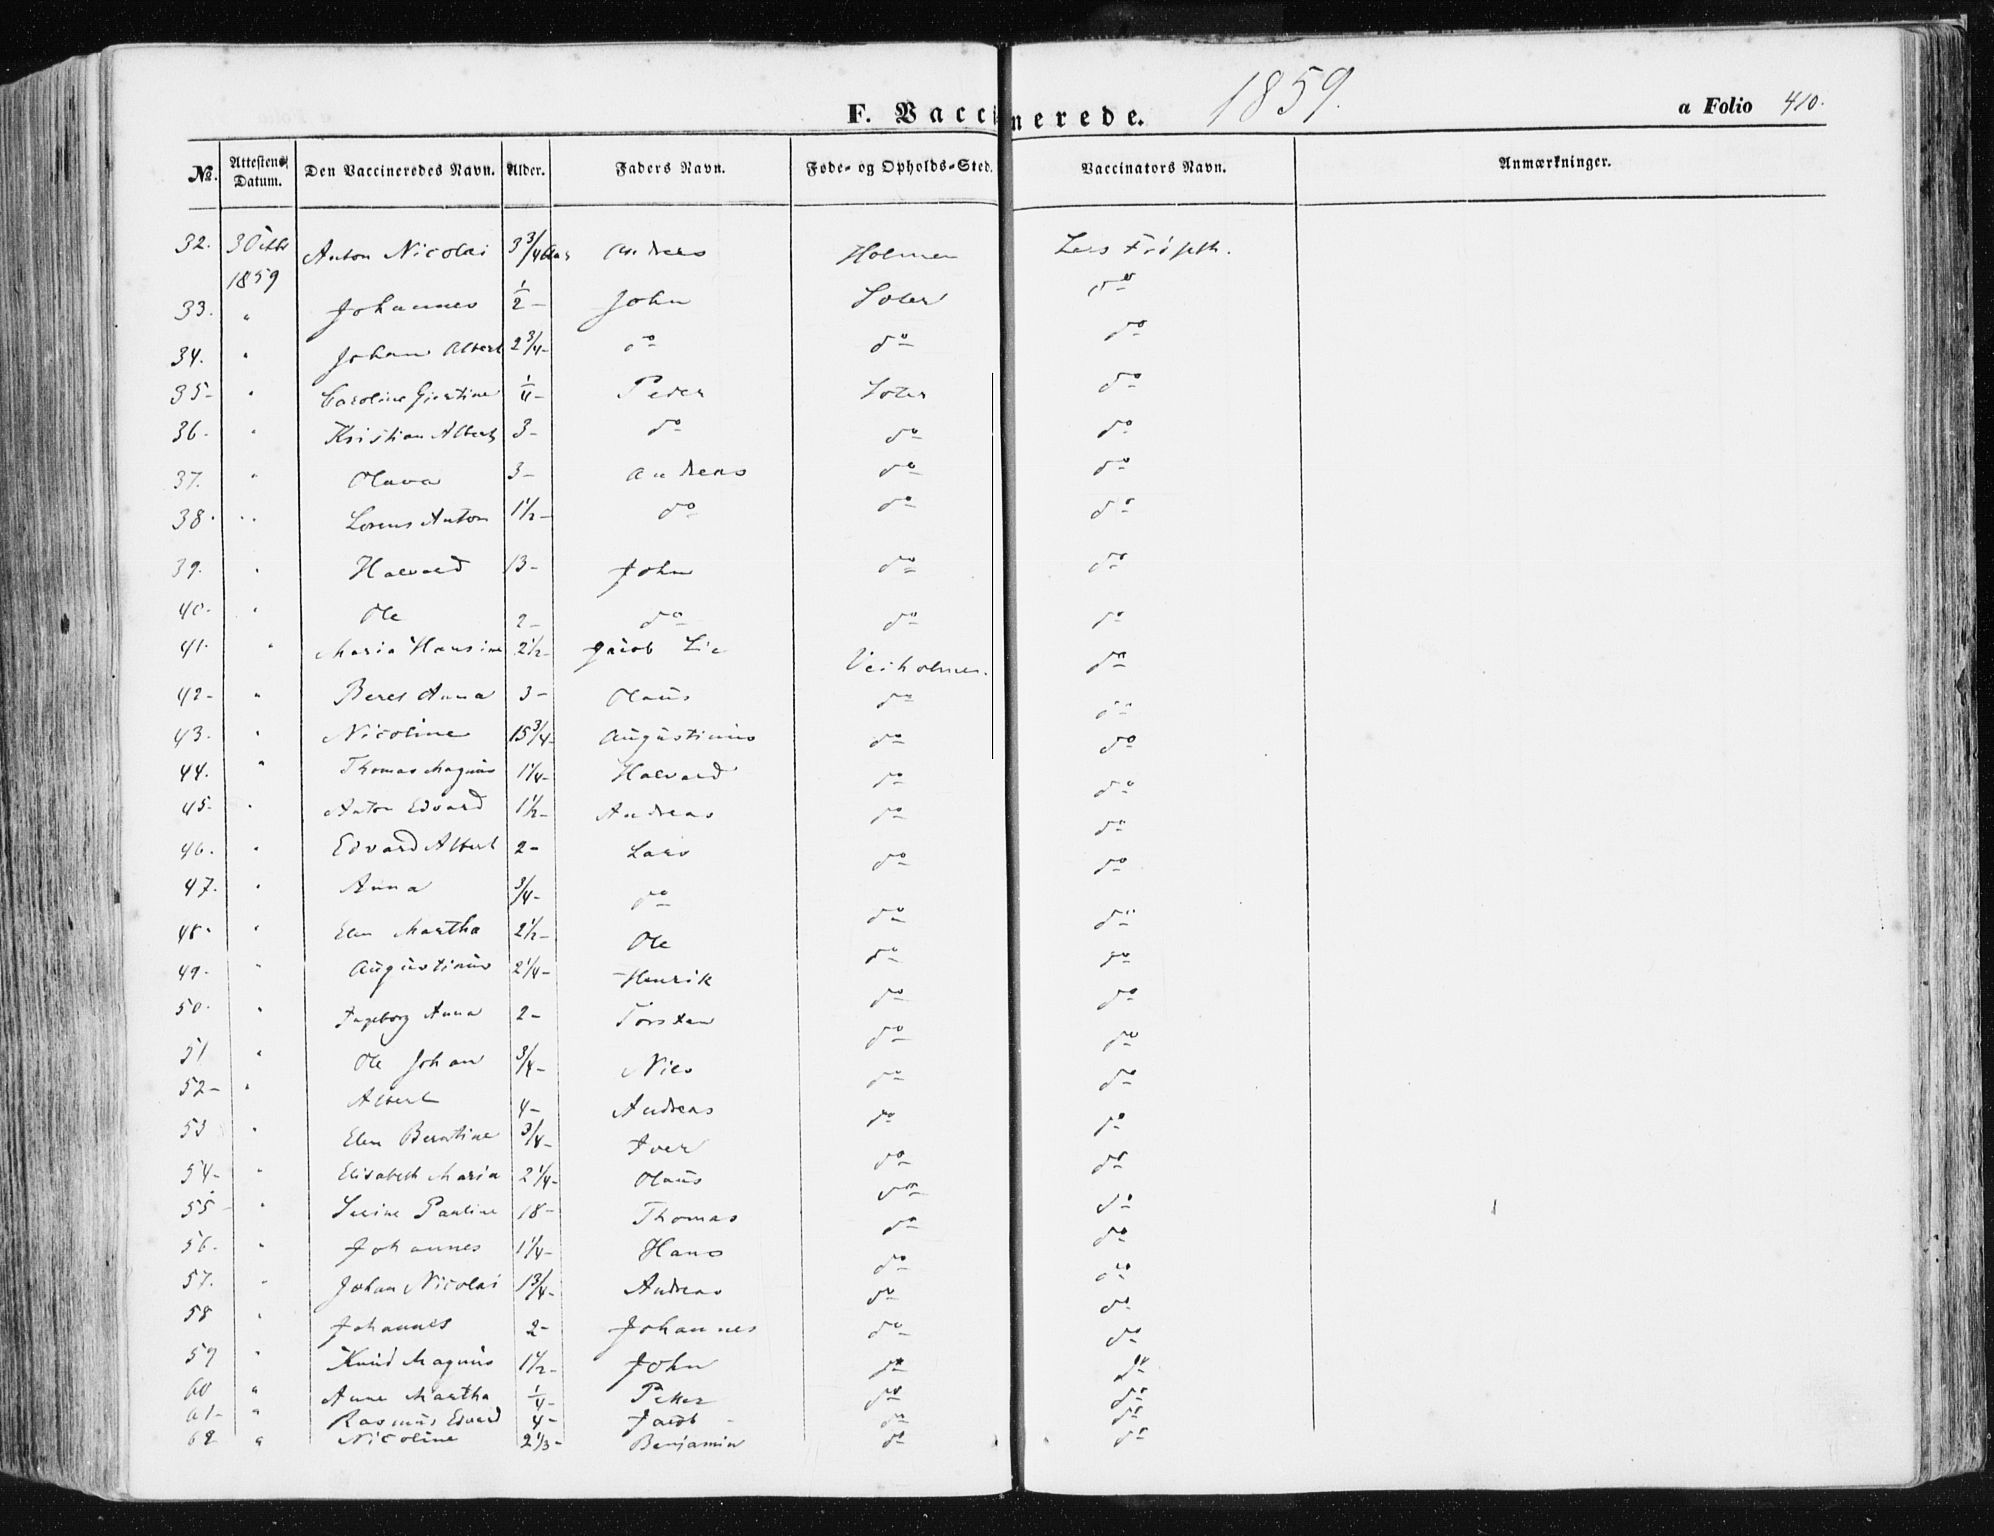 F. Vaccinerede. 1859. a Folio 410.
№. Attestens Datum. Den Vaccineredes Navn. Alder. Faders Navn. Føde- og Opholds-Sted. Vaccinators Navn. Anmærkninger.
32. 30 1859 Anton Nicolai 3 3/4 Aar Andreas Holmen Lars
33. " Johannes 1/2 - John do
34. " Johan Albert 2 3/4 - do do do
35 - " Caroline 1/4 - Peder do
36. " Kristian Albert 3 - do do do
37. " Olava 3 - Andreas do do
38. " Lorens Anton 1 1/2 - do do do
39. " Halvard 13 - John do do
40. " Ole 2 - do do do
41. " Maria Hansine 2 1/2 - Jacob Lie Veiholmen. do
42 - " Beret Anna 3 - Olaus do do
43. " Nicoline 15 3/4 - Augustinus do do
44. " Thomas Magnus 1 1/4 - Halvard do do
45 - " Anton Edvard 1 1/2 - Andreas do do
46. " Edvard Albert 2 - Lars do do
47. " Anna 3/4 - do do do
48. " Elen Martha 2 1/2 - Ole do do
49. " Augustinus 2 1/4 - Henrik do do
50. " Ingeborg Anna 2 - Torsten do do
51 " Ole Johan 3/4 - Nils do do
52 - " Albert 4 - Andreas do do
53 " Elen Berntine 3/4 - Iver do do
54 - " Elisabeth Maria 2 1/4 - Olaus do do
55 - " Pauline 18 - Thomas do do
56. " Johannes 1 1/4 - Hans do do
57. " Johan Nicolai 1 3/4 - Andreas do do
58 " Johannes 2 - Johannes do do
59 " Knud Magnus 1 1/2 - John do do
60 " Anne Martha 1/4 - Petter do do
61 - " Rasmus Edvard 4 - Jacob - do do
62 " Nicoline 2 1/3 - Benjamin do do